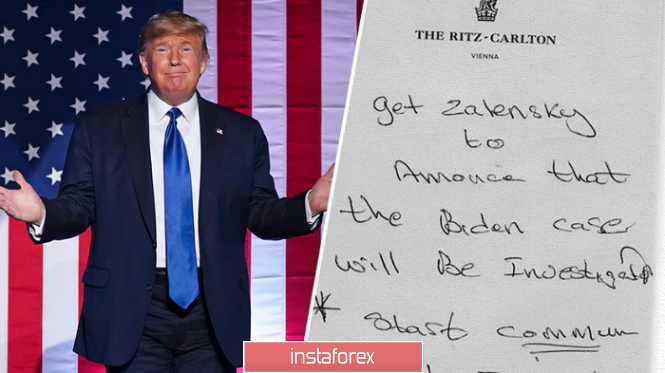 THE RITZ-CARLTON
VIENNA
get Zalensky
to
Annouce that
the Biden case
will Be Investigated
* start commun
instaforex